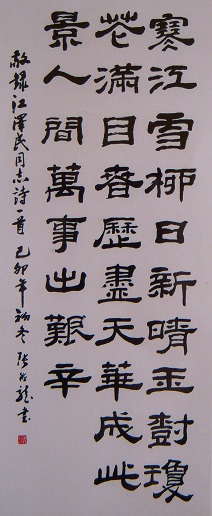 寒江雪柳日新晴玉樹瓊
花滿目春歷盡天華成此
景人間萬事出艱辛
敬録江澤民同志詩一首 己卯年初冬 張龍書